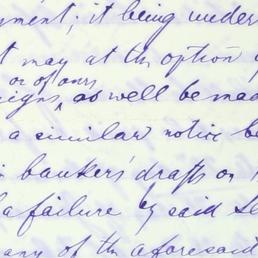 yment; it being under
t may at the option
or of ours
signs, as well be mad
a similar notice be
bankers' drafts on
a failure by said Se
any of the aforesaid